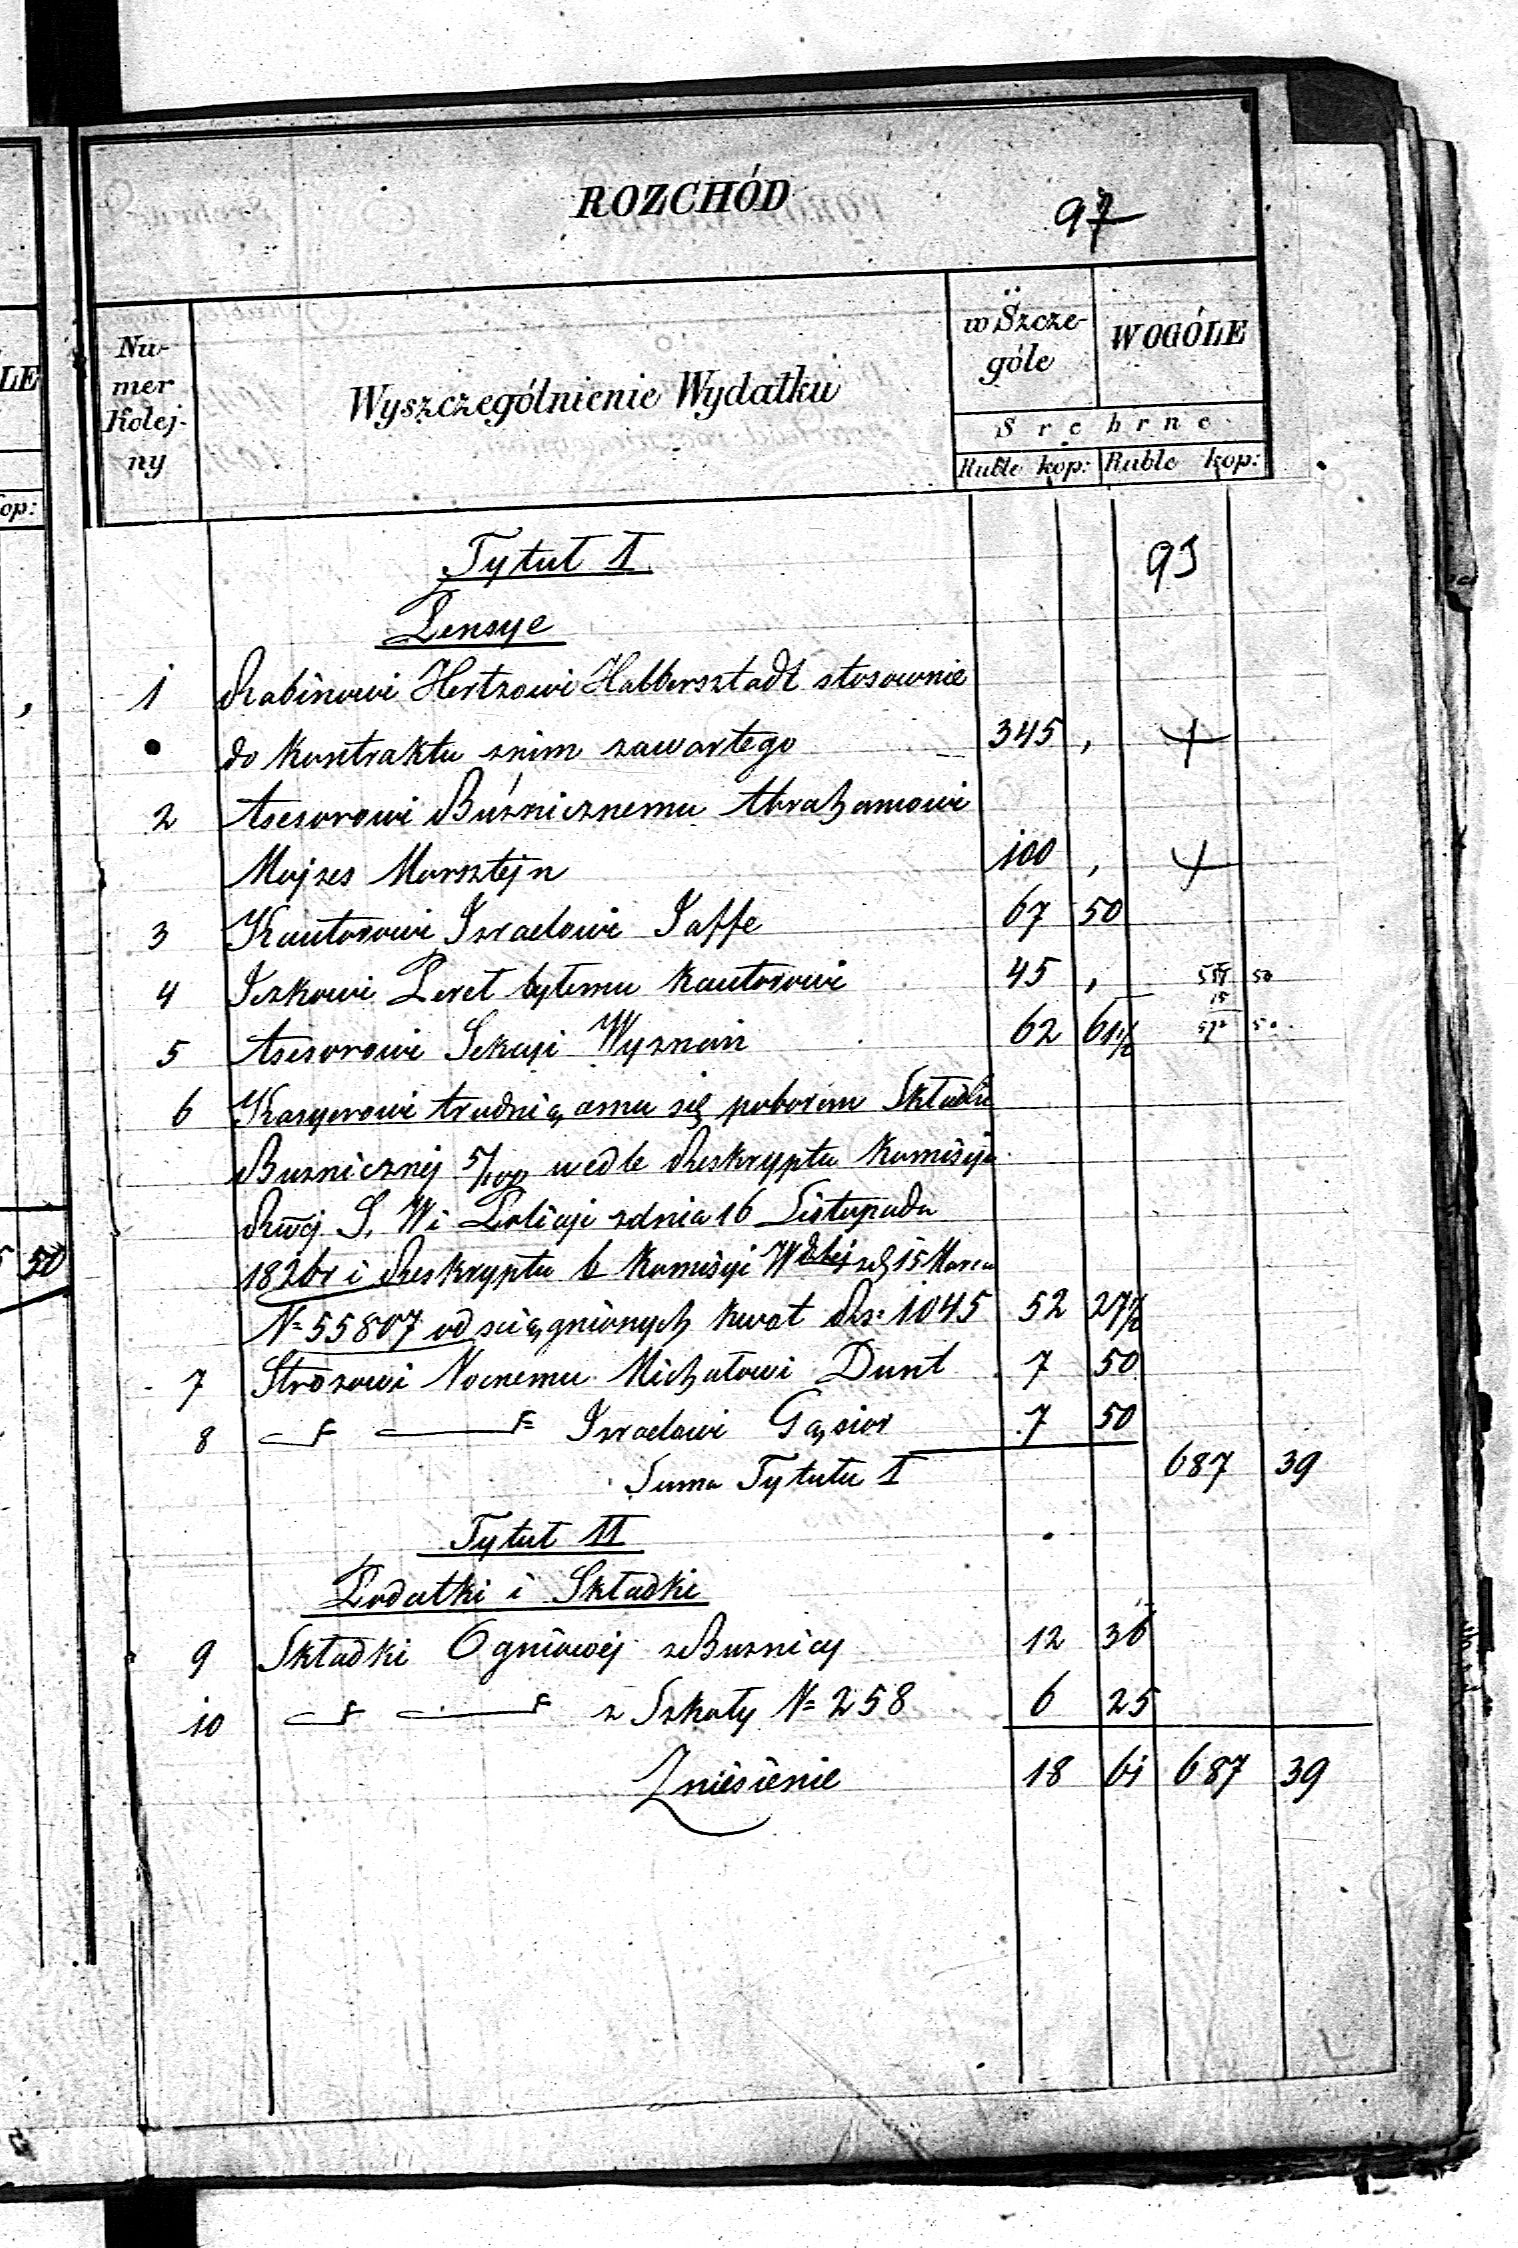 LE
op:
,
5 50
ROZCHÓD
97
Nu-
mer
Kolej-
ny
Wyszczególnienie Wydatku
w Szcze-
góle
WOGÓLE
Srebrne
Ruble kop: Ruble kop:
Tytuł I
93
Pensye
1 Rabinowi Hertzowi Halbersztadt stosownie
do kontraktu z nim zawartego 345 ,
2 Asesorowi Bużnicznemu Abrahamowi
Mojzes Morsztejn 100 ,
3 Kantorowi Izraelowi Jaffe 67 50
4 Iczkowi Peret byłemu Kantorowi 45 , 50
15
5 Asesorowi Sekcyi Wyznań 62 61½ 572 50
6 Kasyerowi trudniącemu się poborem Składki
Buznicznej 5/100 wedle Reskryptu Komisyi
Rwej S. W i Policyi z dnia 16 Listopada
1826r i Reskryptu b Komisyi 15 Marca
N= 55807 od sciągnionych kwot Rs: 1045 52 27½
7 Strozowi Nocnemu Michałowi Dunt 7 50
8 Izraelowi Gąsior 7 50
Suma Tytułu I 687 39
Tytuł II
Podatki i Składki
9 Składki Ogniowej z Buznicy 12 36
10 z Szkoły N= 258 6 25
Zniesienie 18 61 687 39